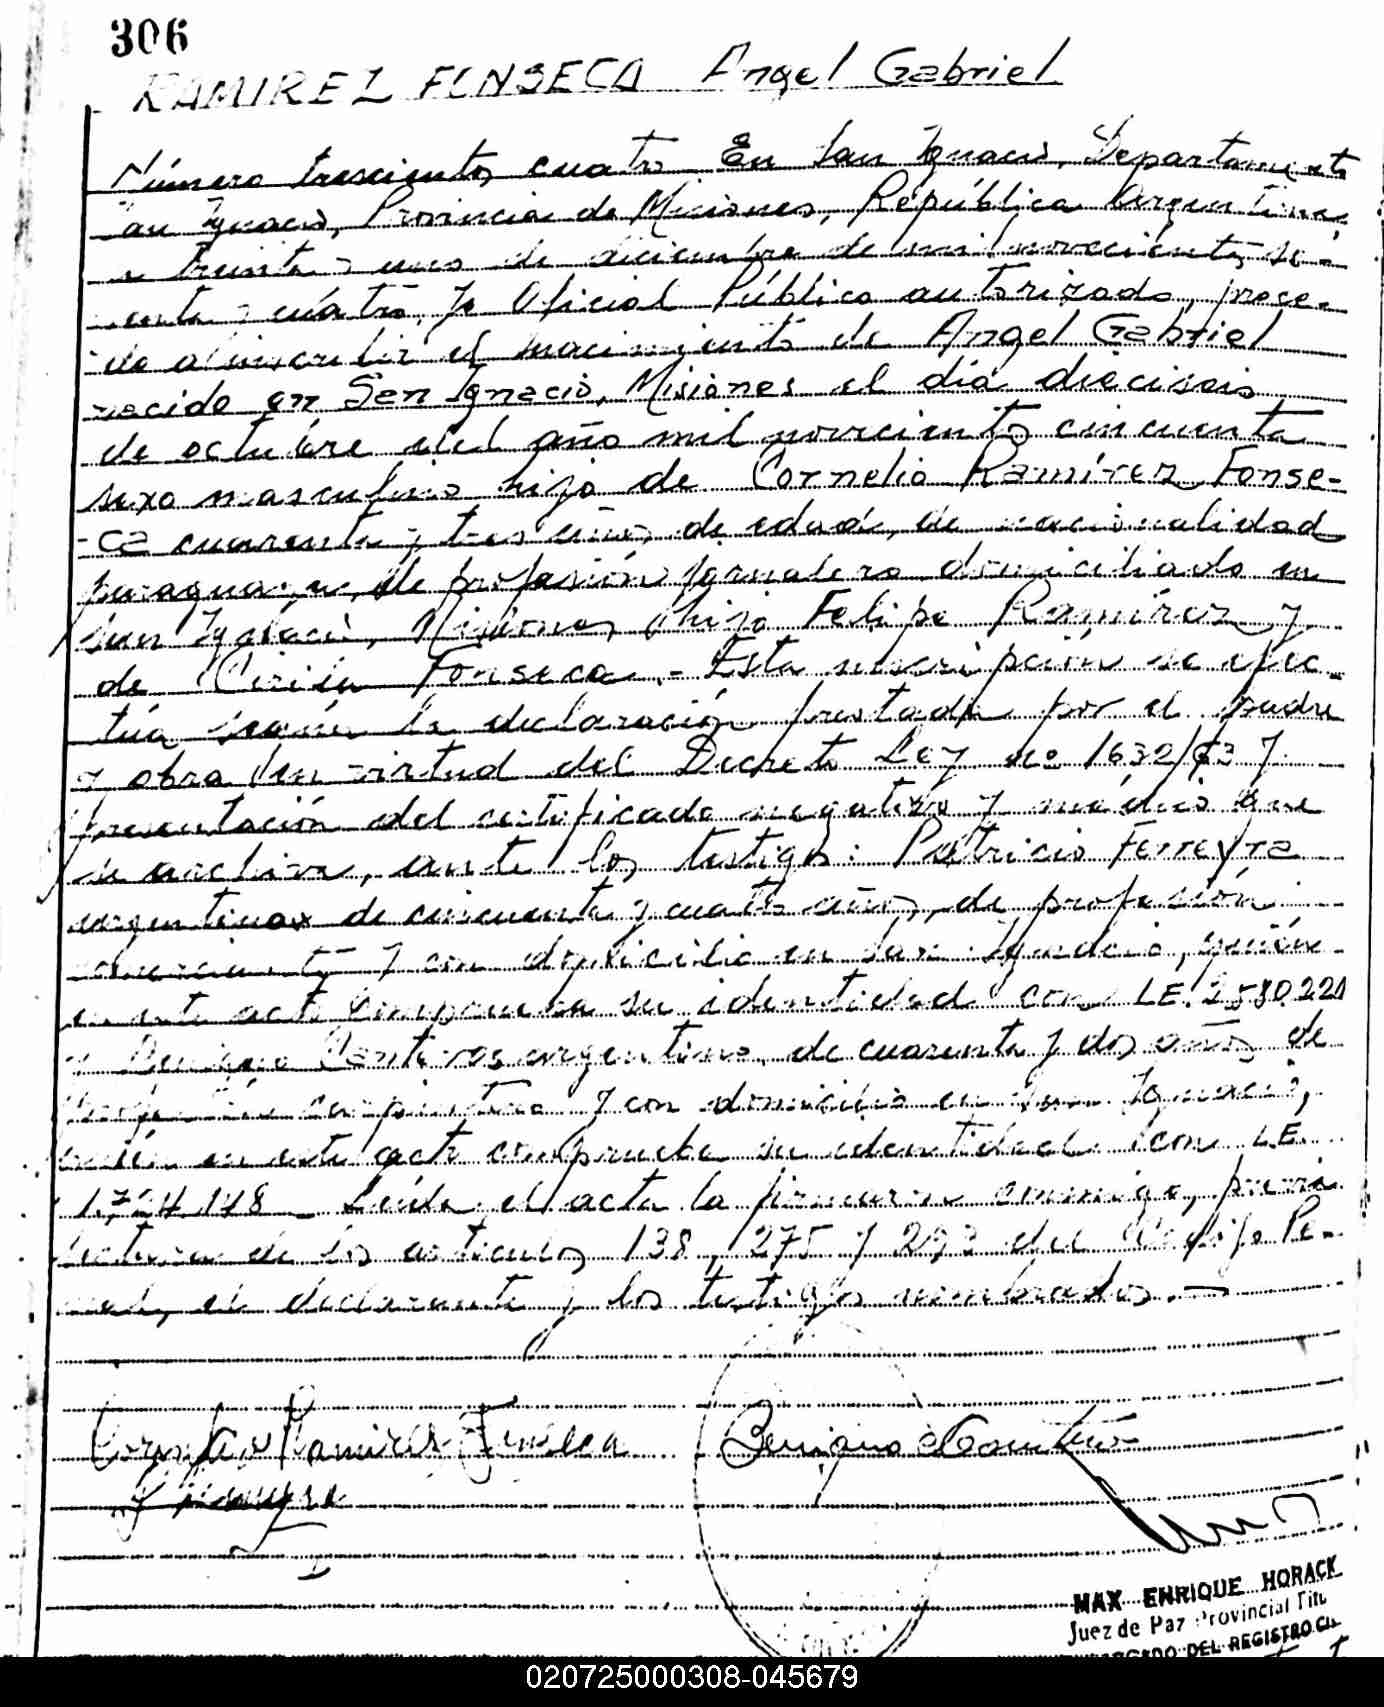 306
RAMIREZ FONSECA Angel Gabriel
Número trescientos cuatro En San Ignacio, Departamento
San Ignacio, Provincia de Misiones, República Argentina,
a treinta y uno de diciembre de mil novecientos se-
senta y cuatro, Yo Oficial Público autorizado, proce-
do a inscribir el nacimiento de Angel Gabriel
nacido en San Ignacio, Misiones el día dieciseis
de octubre del año mil novecientos cincuenta
sexo masculino hijo de Cornelio Ramírez Fonse-
ca cuarenta y tres años de edad, de nacionalidad
paraguaya, de profesión jornalero domiciliado en
San Ignacio, Misiones, hijo Felipe Ramírez y
de Cirila Fonseca.- Esta inscripción se efec-
túa según la declaración prestada por el padre
y obra en virtud del Decreto Ley nº 1632/63 y
presentación del certificado negativo y médico que
se archiva, ante los testigos: Patricio Ferreyra
argentino de cincuenta y cuatro años, de profesión
comerciante y con domicilio en San Ignacio, quién
en este acto comprueba su identidad con LE. 2580220
y Benigno Canteros argentino, de cuarenta y dos años de
profesión carpintero y con domicilio en San Ignacio,
quién en este acto comprueba su identidad con LE.
1.724.148 - Leída el acta la firmaron conmigo, previa
lectura de los artículos 138, 275 y 293 del Código Pe-
nal, el declarante y los testigos nombrados.-
Cornelio Ramirez Fonseca
Benigno Canteros
MAX ENRIQUE HORACK
Juez de Paz Provincial Titu
DEL REGISTRO CI
020725000308-045679